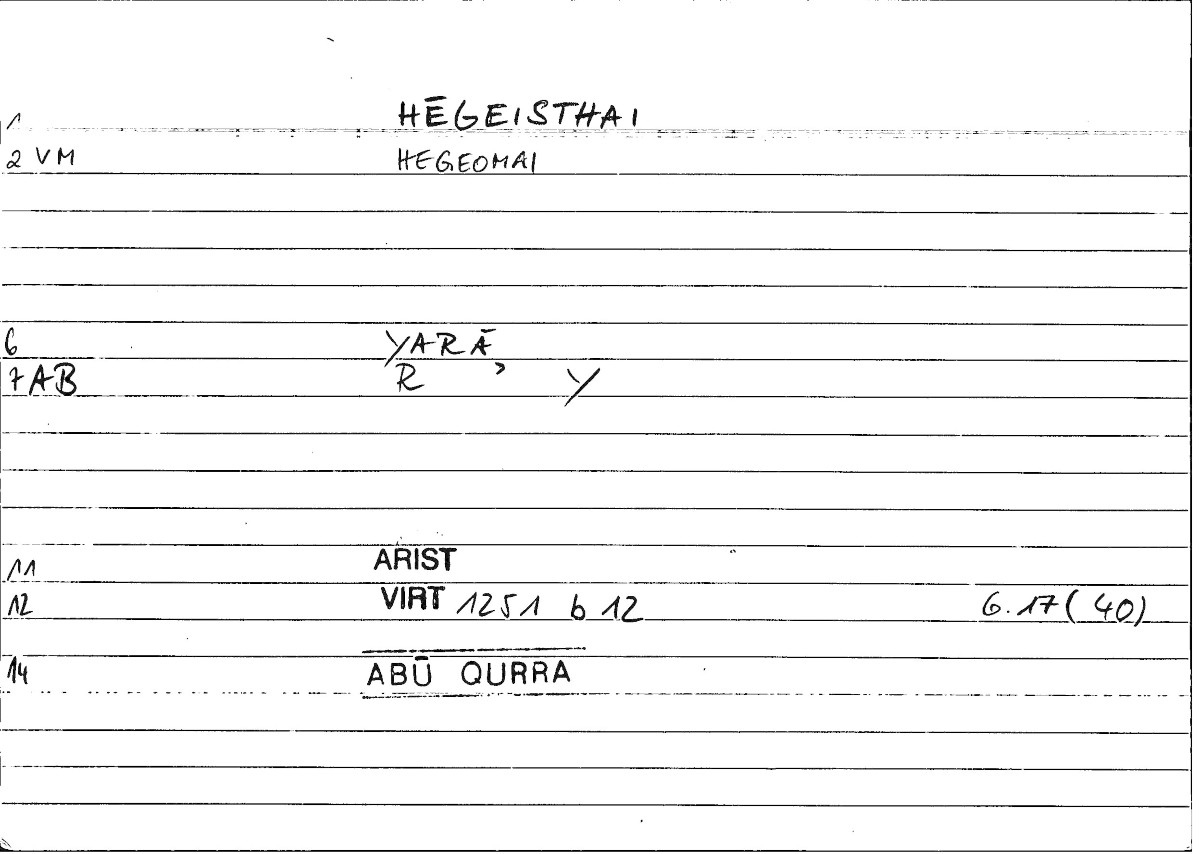 1 HĒGEISTHAI
2 VM HEGEOMAI
6 YARĀ
7 AB R ʾ Y
11 ARIST
12 VIRT 1251 b 12 6.17 (40)
14 ABŪ QURRA